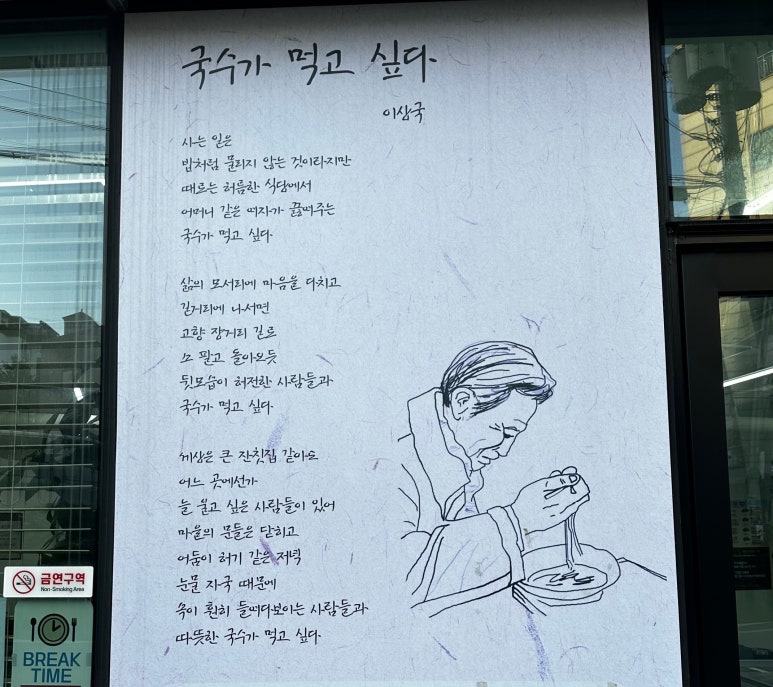 국수가 먹고 싶다
이상국
사는 일은
밥처럼 물리지 않는 것이라지만
때로는 허름한 식당에서
어머니 같은 여자가 끓여주는
국수가 먹고 싶다
삶의 모서리에 마음을 다치고
길거리에 나서면
고향 장거리 길로
소 팔고 돌아오듯
뒷모습이 허전한 사람들과
국수가 먹고 싶다
세상은 큰 잔칫집 같아도
어느 곳에선가
늘 울고 싶은 사람들이 있어
마을의 문들은 닫히고
어둠이 허기 같은 저녁
눈물 자국 때문에
속이 훤히 들여다보이는 사람들과
따뜻한 국수가 먹고 싶다
금연구역
Non-Smoking Area
BREAK
TIME